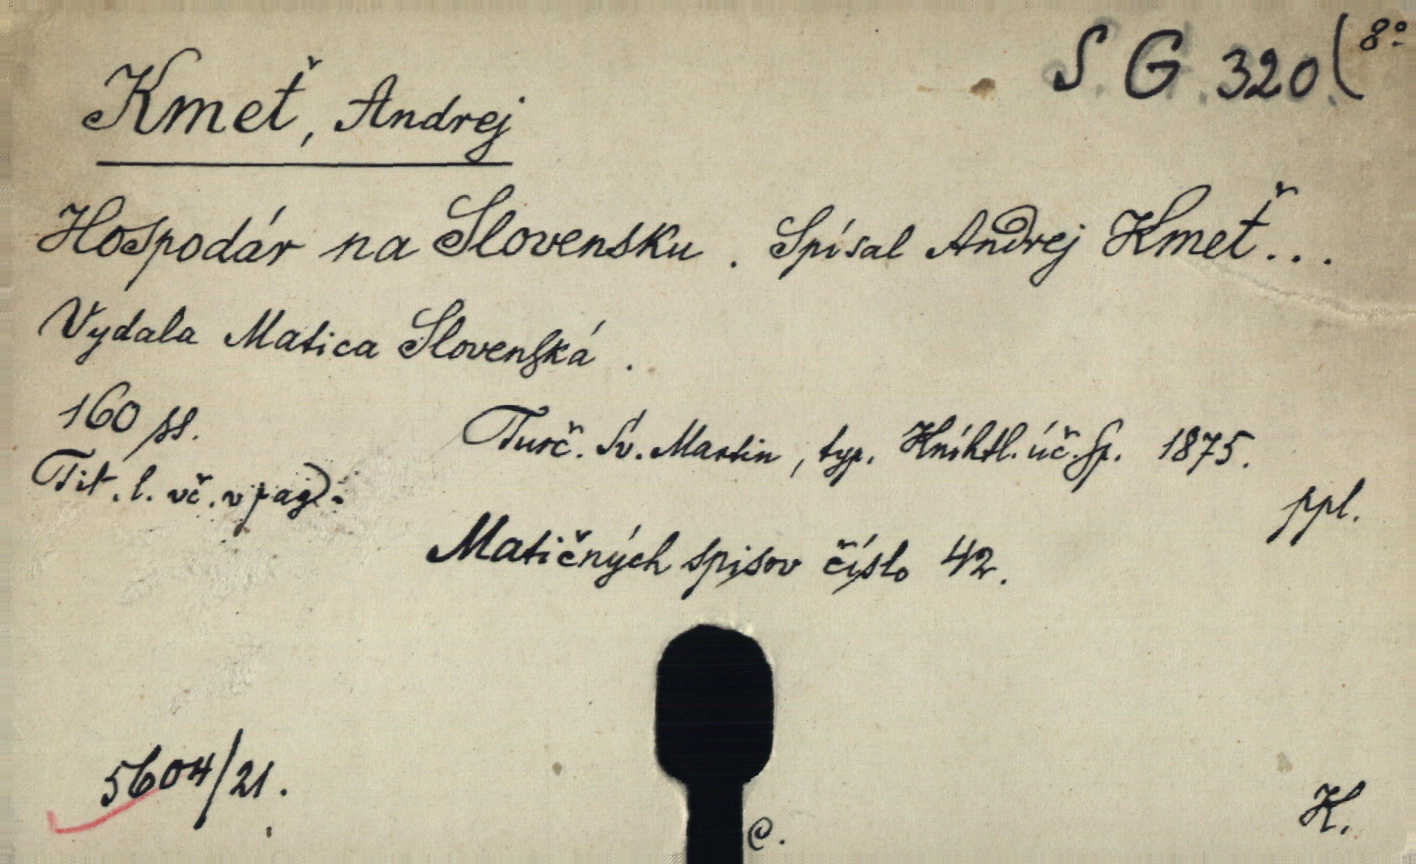 S. G. 320. (8°
Kmeť, Andrej
Hospodár na Slovensku. Spísal Andrej Kmeť...
Vydala Matica Slovenská.
160 ss.
Turč. Sv. Martin, typ. Kníhtl. úč. sp. 1875.
Tit. l. vč. v pag.
ppl.
Matičných spisov číslo 42.
5604/21.
K.
C.